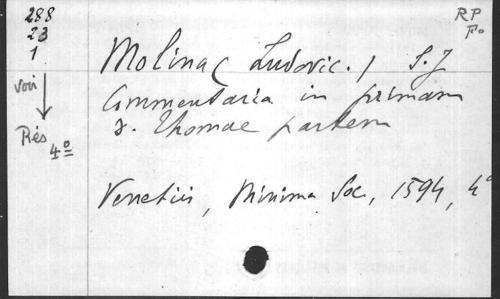 288
23
1
voir
Rés 4º
RP
Fo
Molina (Ludovic.) S.J
Commentaria in primam
D. Thomae partem
Venetiis, Minima Soc, 1594, 4º